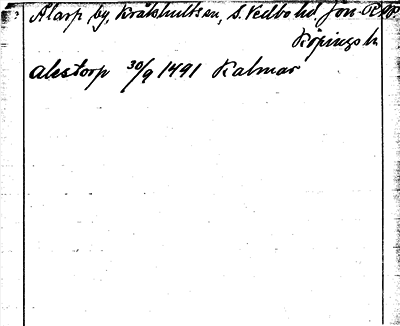 Alarp, by, Kråkshults sn, S. Vedbo hd. Jön. R
Köpings h
alestorp 30/9 1491 Kalmar